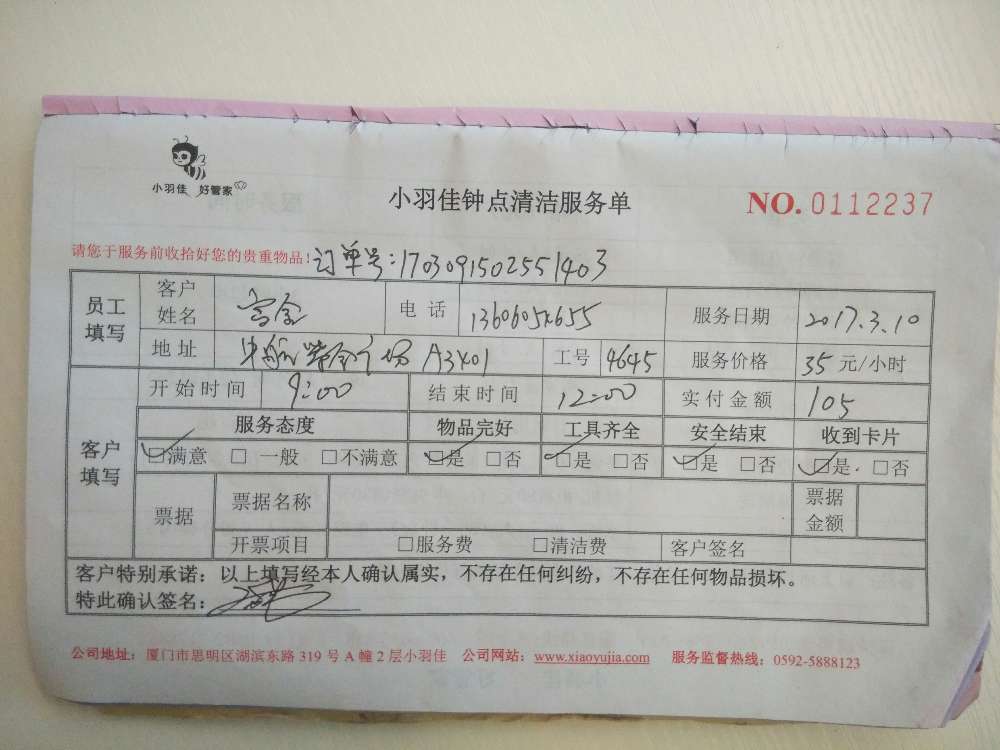 小羽佳 好管家
小羽佳钟点清洁服务单
NO. 0112237
请您于服务前收拾好您的贵重物品! 订单号:1703091502551403
员工填写 客户姓名 电话 服务日期 2017.3.10
地址 A3401 工号 4645 服务价格 35 元/小时
客户填写 开始时间 9:00 结束时间 12:00 实付金额 105
服务态度 物品完好 工具齐全 安全结束 收到卡片
☑满意 □ 一般 □不满意 ☑是 □否 ☑是 □否 ☑是 □否 ☑是. □否
票据 票据名称 票据金额
开票项目 □服务费 □清洁费 客户签名
客户特别承诺：以上填写经本人确认属实，不存在任何纠纷，不存在任何物品损坏。
特此确认签名：
公司地址：厦门市思明区湖滨东路 319 号 A 幢 2 层小羽佳 公司网站：www.xiaoyujia.com 服务监督热线：0592-5888123